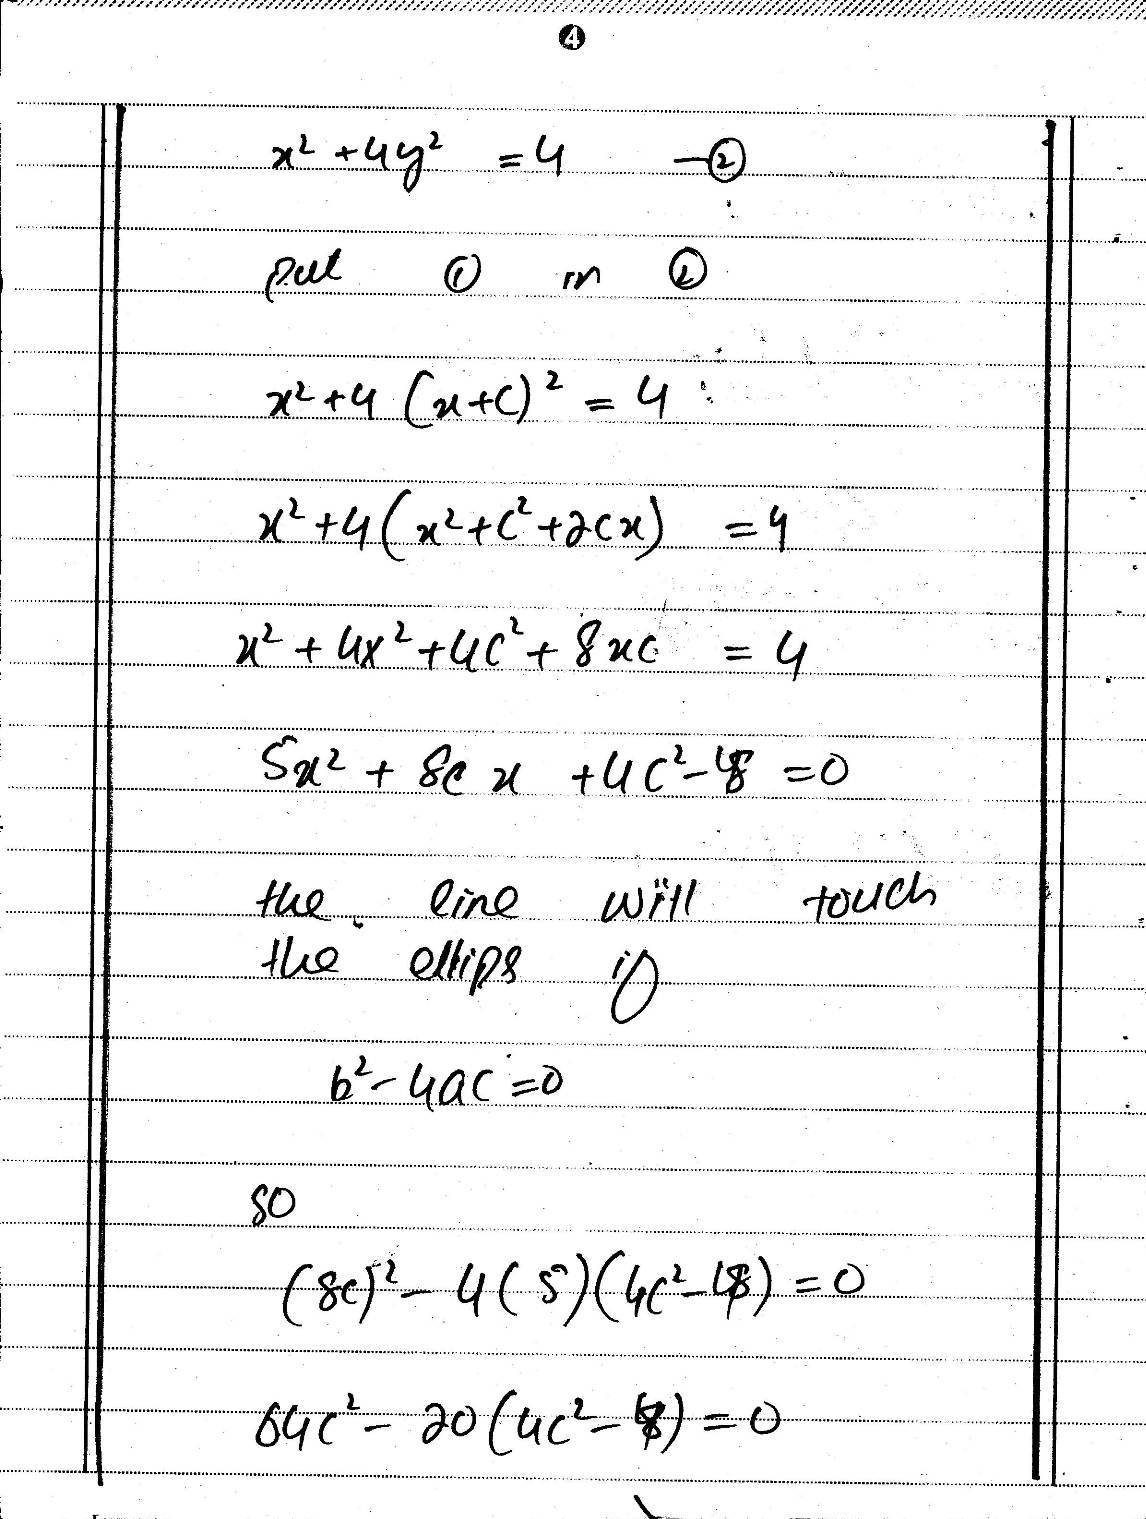 4
x² + 4y² = 4 —②
put ① in ②
x² + 4 (x+c)² = 4
x² + 4 (x² + c² + 2cx) = 4
x² + 4x² + 4c² + 8xc = 4
5x² + 8c x + 4c² - 4 = 0
the line will touch
the ellips if
b² - 4ac = 0
so
(8c)² - 4(5)(4c² - 4) = 0
64c² - 20(4c² - 4) = 0